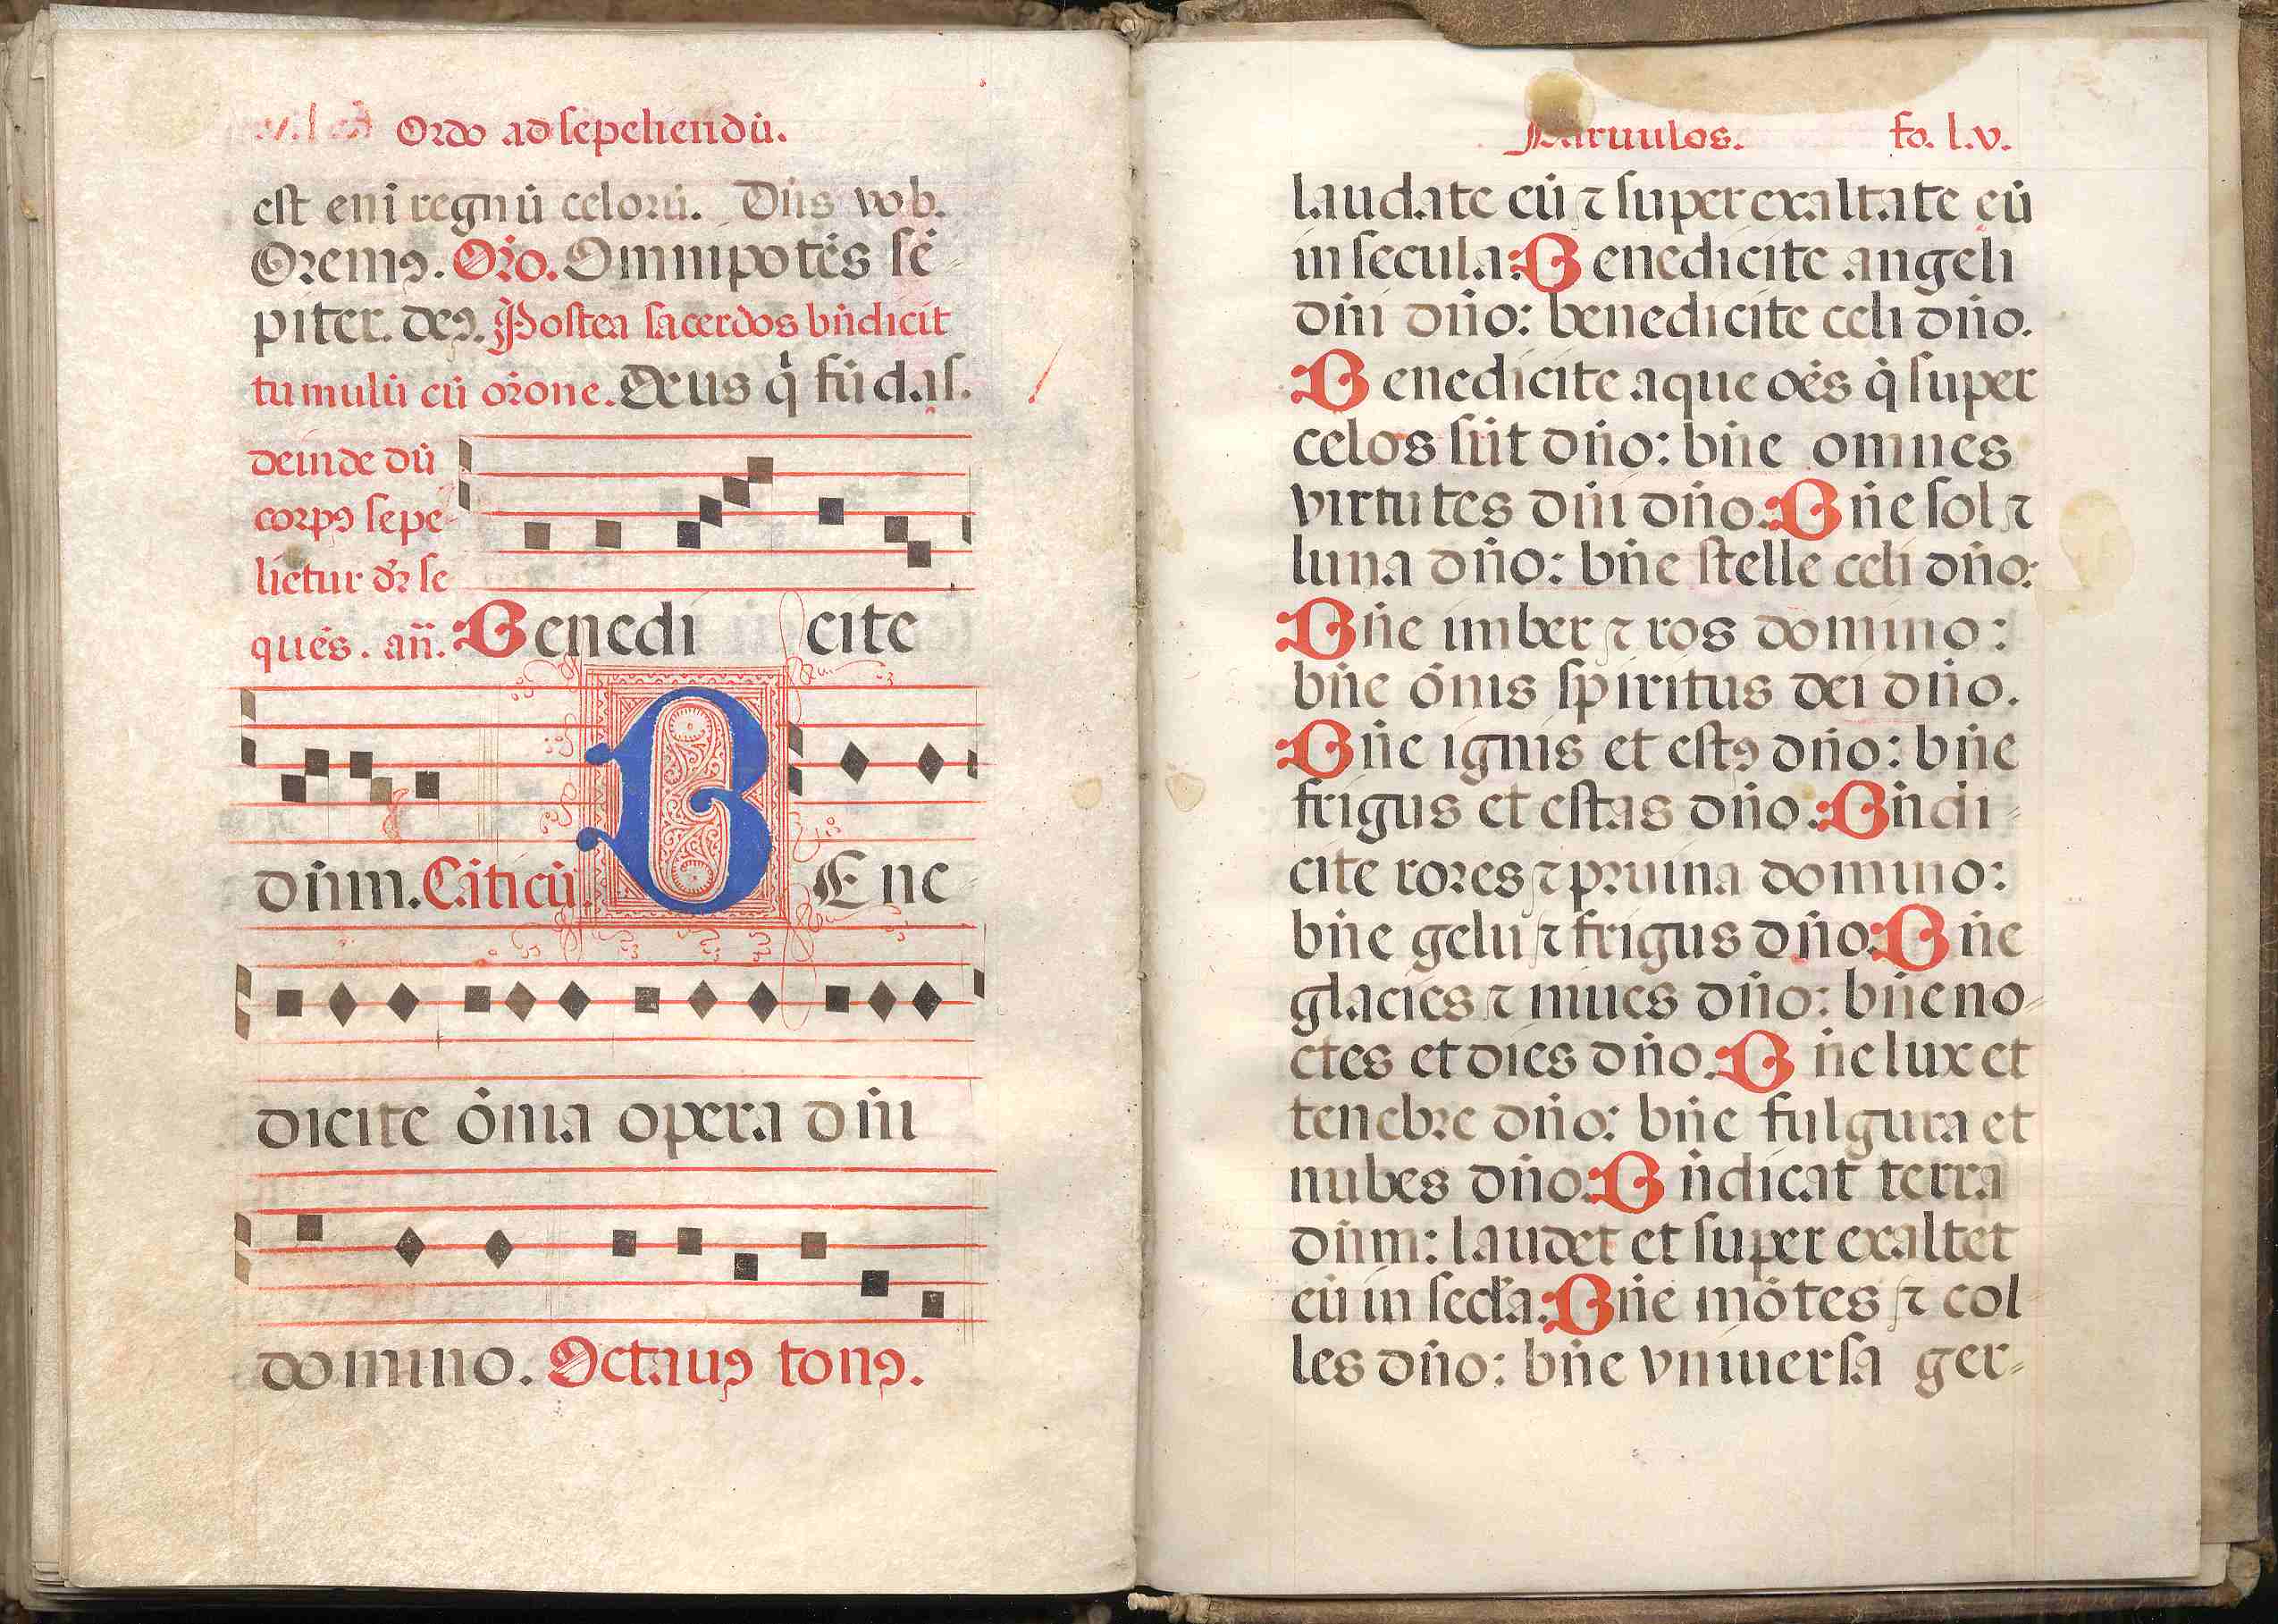 Ordo ad sepeliendū.
est eni̅ regnū celorū. Dn̄s vob.
Oremꝯ. Or̄o. Omnipotēs sē-
piter. deꝯ. Postea sacerdos bn̄dicit
tumulū cū or̄one. Deus q̄ fūdas.
deinde dū
corpꝯ sepe-
lietur dr̄ se
quēs. an̄. Benedi cite
dn̄m. Citicū. BEne-
dicite ōnia opera dn̄i
domino. Octauꝯ tonꝯ.
Paruulos. fo. l.v.
laudate eū ⁊ superexaltate eū
in secula: Benedicite angeli
dn̄i dn̄o: benedicite celi dn̄o.
Benedicite aque oēs q̄ super
celos sūt dn̄o: bn̄e omnes
virtutes dn̄i dn̄o. Bn̄e sol ⁊
luna dn̄o: bn̄e stelle celi dn̄o:
Bn̄e imber ⁊ ros domino:
bn̄e ōnis spiritus dei dn̄o.
Bn̄e ignis et estꝯ dn̄o: bn̄e
frigus et estas dn̄o. Bn̄di-
cite rores ⁊ pruina domino:
bn̄e gelu ⁊ frigus dn̄o. Bn̄e
glacies ⁊ niues dn̄o: bn̄e no-
ctes et dies dn̄o. Bn̄e lux et
tenebre dn̄o: bn̄e fulgura et
nubes dn̄o. Bn̄dicat terra
dn̄m: laudet et super exaltet
eū in secl̄a: Bn̄e mōtes ⁊ col
les dn̄o: bn̄e vniuersa ger-